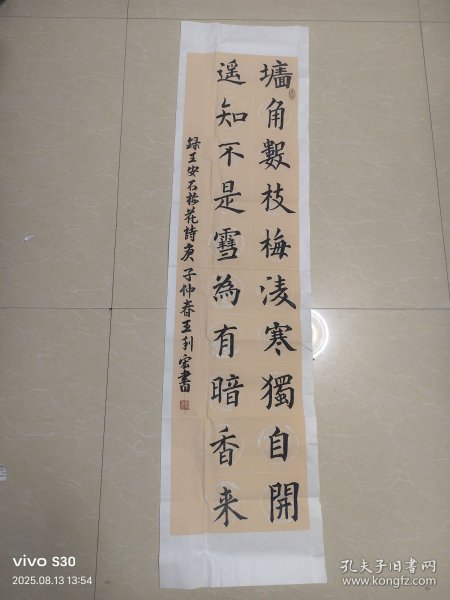 墻角數枝梅凌寒獨自開
遥知不是雪為有暗香来
録王安石梅花詩庚子仲春王利宏書
vivo S30
2025.08.13 13:54
孔夫子旧书网
www.kongfz.com